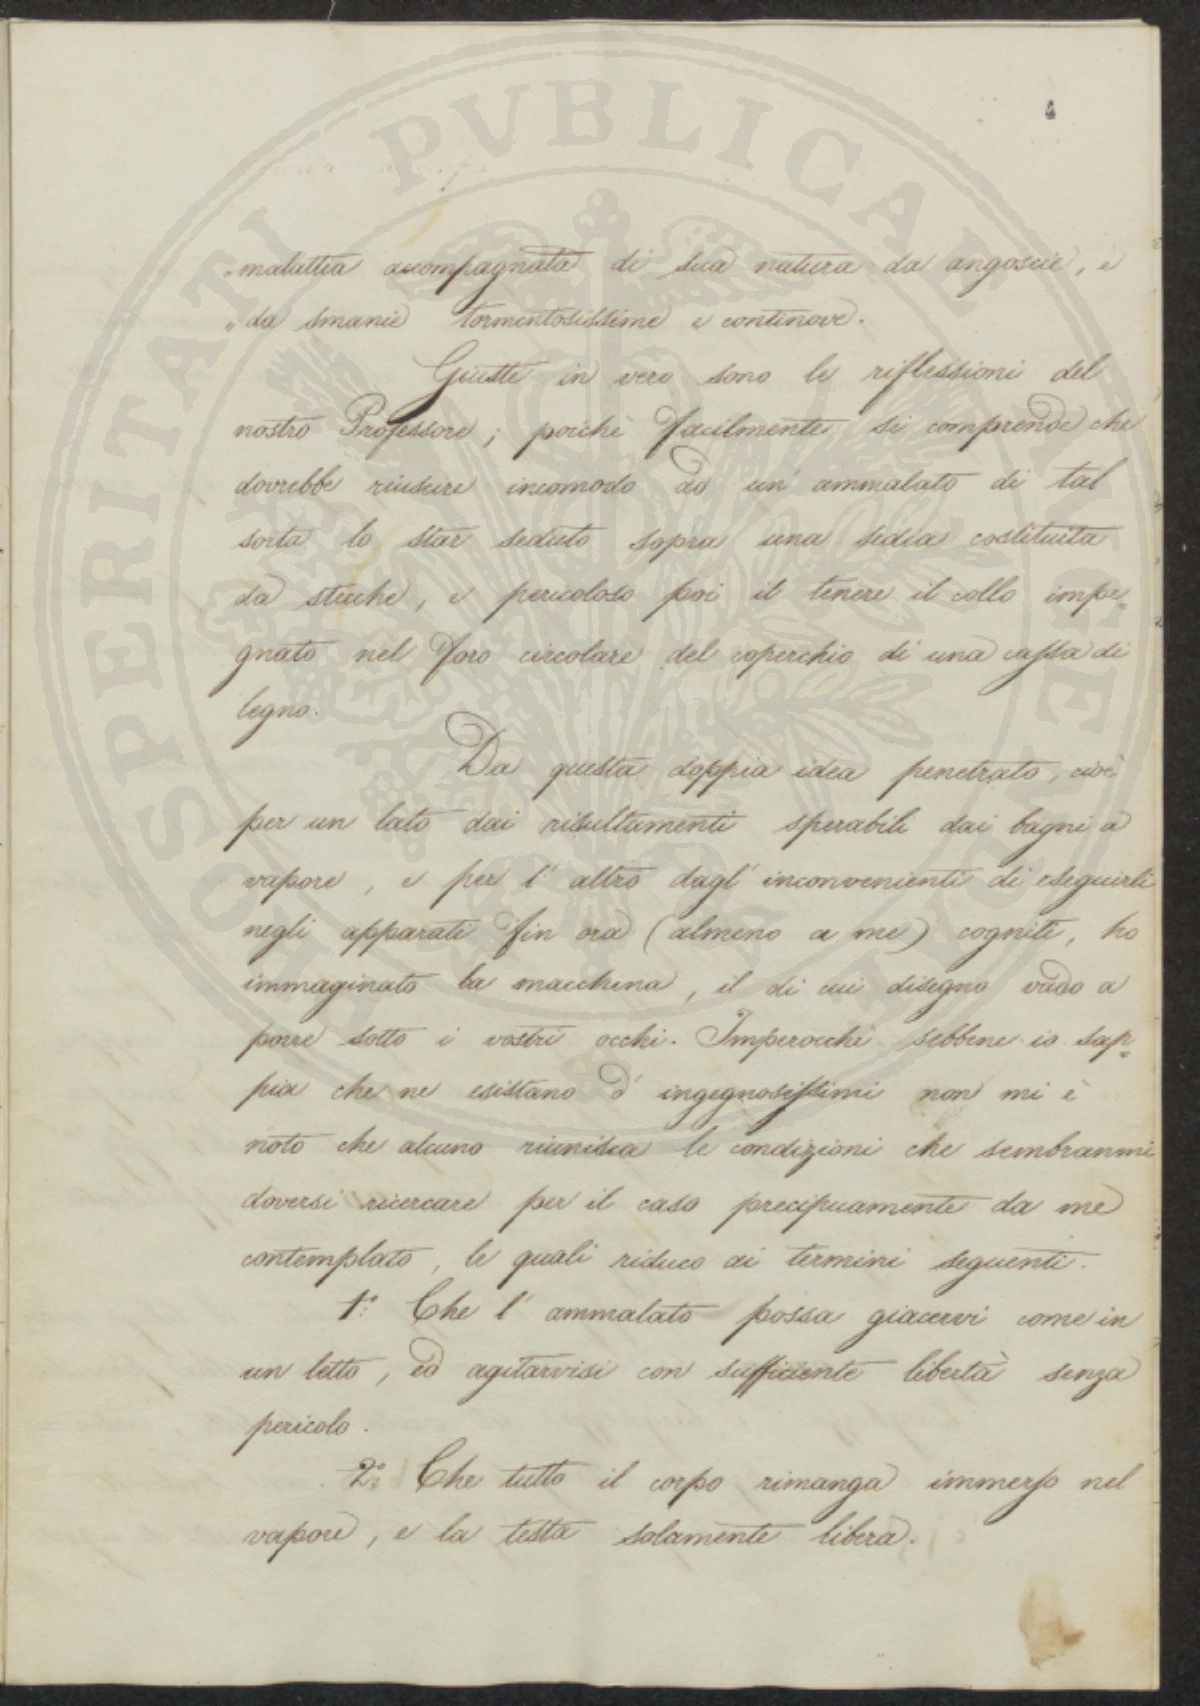 4
„malattia accompagnata di sua natura da angoscie, e
„da smanie tormentosissime e continove.
Giuste in vero sono le riflessioni del
nostro Professore; poichè facilmente si comprende che
dovrebbe riuscire incomodo ad un' ammalato di tal
sorta lo star seduto sopra una sedia costituita
da stecche, e pericoloso poi il tenere il collo impe=
gnato nel foro circolare del coperchio di una cassa di
legno.
Da questa doppia idea penetrato, cioè
per un lato dai risultamenti sperabili dai bagni a
vapore, e per l'altro dagl'inconvenienti di eseguirli
negli apparati fin ora (almeno a me) cogniti, ho
immaginato la macchina, il di cui disegno vado a
porre sotto i vostri occhi. Imperocchè sebbene io sap=
pia che ne esistano d'ingegnosissimi non mi è
noto che alcuno riunisca le condizioni che sembranmi
doversi ricercare per il caso precipuamente da me
contemplato, le quali riduco ai termini seguenti.
1.° Che l'ammalato possa giacervi come in
un letto, ed agitarvisi con sufficiente libertà senza
pericolo.
2.° Che tutto il corpo rimanga immerso nel
vapore, e la testa solamente libera.
PROSPERITATI PVBLICAE AVGENDAE